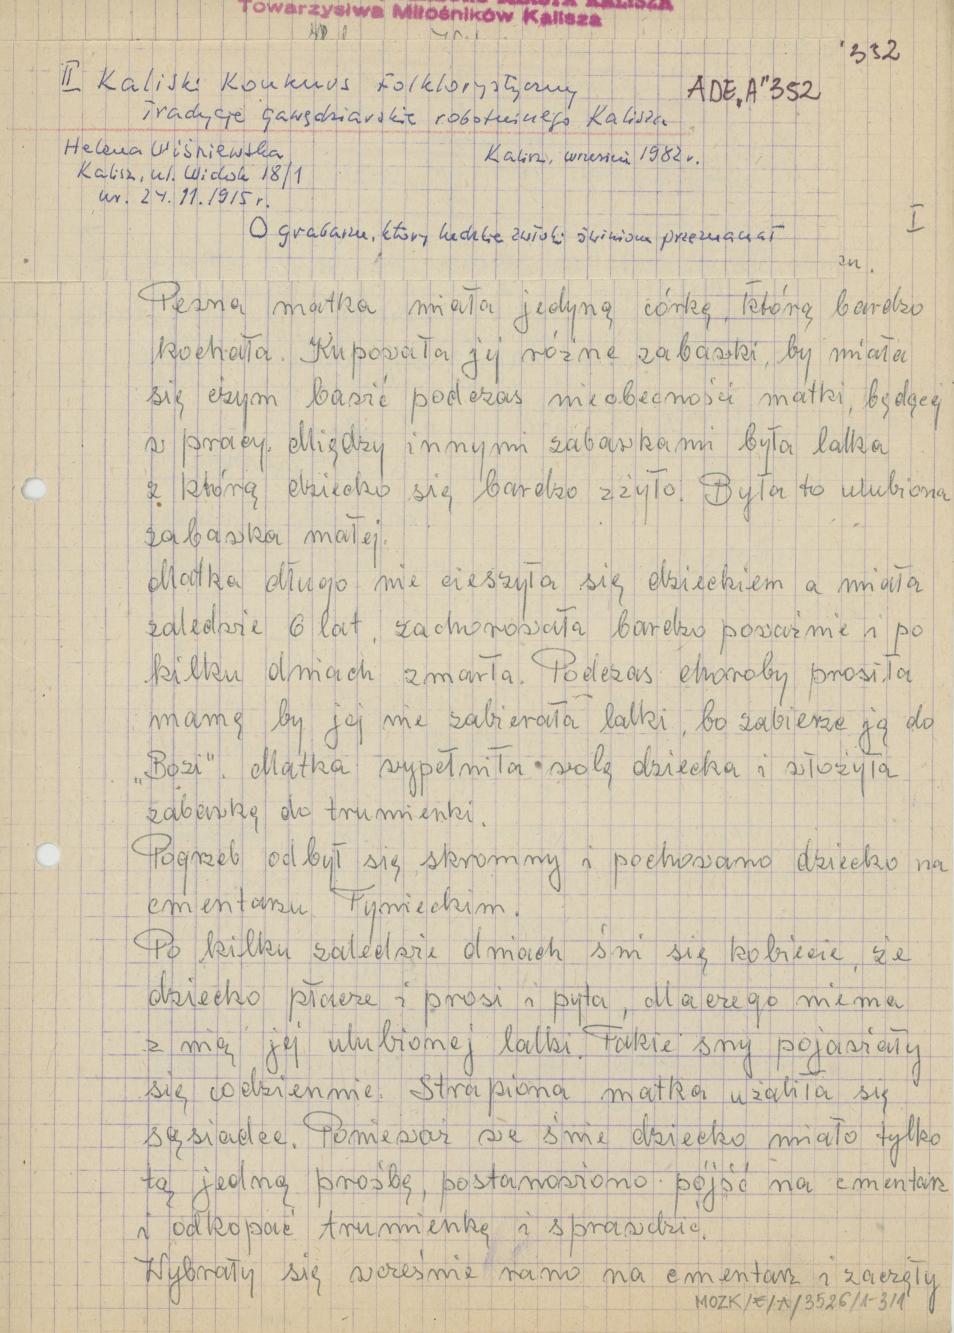 Towarzystwa Miłośników Kalisza
332
II Kaliski Konkurs Folklorystyczny
ADE "A" 352
Tradycje gawędziarskie robotniczego Kalisza
Helena Wiśniewska
Kalisz, wrzesień 1982 r.
Kalisz, ul. Widok 18/1
ur. 24.11.1915 r.
I
O grabarzu, który ludzkie zwłoki świniom przeznaczał
Pewna matka miała jedyną córkę, którą bardzo
kochała. Kupowała jej różne zabawki, by miała
się czym bawić podczas nieobecności matki, będącej
w pracy. Między innymi zabawkami była lalka
z którą dziecko się bardzo zżyło. Była to ulubiona
zabawka małej.
Matka długo nie cieszyła się dzieckiem a miała
zaledwie 6 lat, zachorowała bardzo poważnie i po
kilku dniach zmarła. Podczas choroby prosiła
mamę by jej nie zabierała lalki, bo zabierze ją do
„Bozi". Matka wypełniła wolę dziecka i włożyła
zabawkę do trumienki.
Pogrzeb odbył się skromny i pochowano dziecko na
cmentarzu Tynieckim.
Po kilku zaledwie dniach śni się kobiecie, że
dziecko płacze i prosi i pyta, dlaczego niema
z nią jej ulubionej lalki. Takie sny pojawiały
się codziennie. Strapiona matka użaliła się
sąsiadce. Ponieważ we śnie dziecko miało tylko
tą jedną prośbę, postanowiono pójść na cmentarz
i odkopać trumienkę i sprawdzić.
Wybrały się wcześnie rano na cmentarz i zaczęły
MOZK/E/A/3526/1-3/1